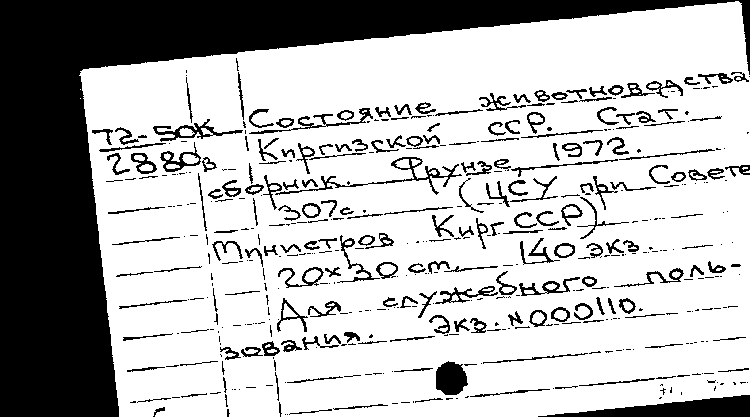 72-50К Состояние животноводства
2880в Киргизской ССР. Стат.
сборник. Фрунзе, 1972.
307с. (ЦСУ при Совете
Министров Кирг ССР).
20х30 см. 140 экз.
Для служебного поль-
зования. Экз. №000110.